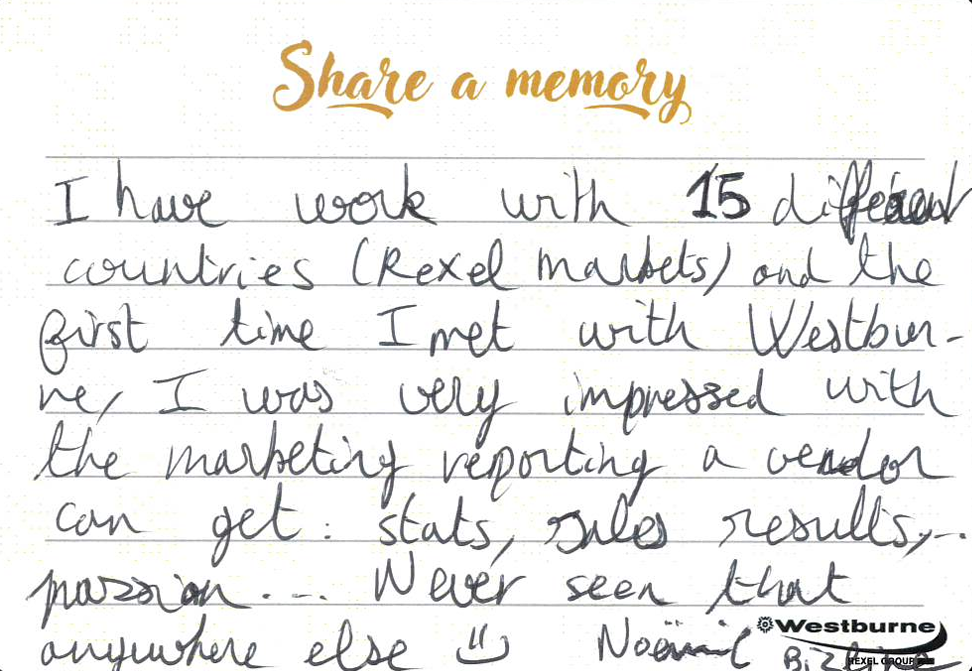 Share a memory
I have work with 15 different
countries (Rexel markets) and the
first time I met with Westbur-
ne, I was very impressed with
the marketing reporting a vendor
can get: stats, sales results,...
passion... Never seen that
anywhere else
Westburne
REXEL GROUP